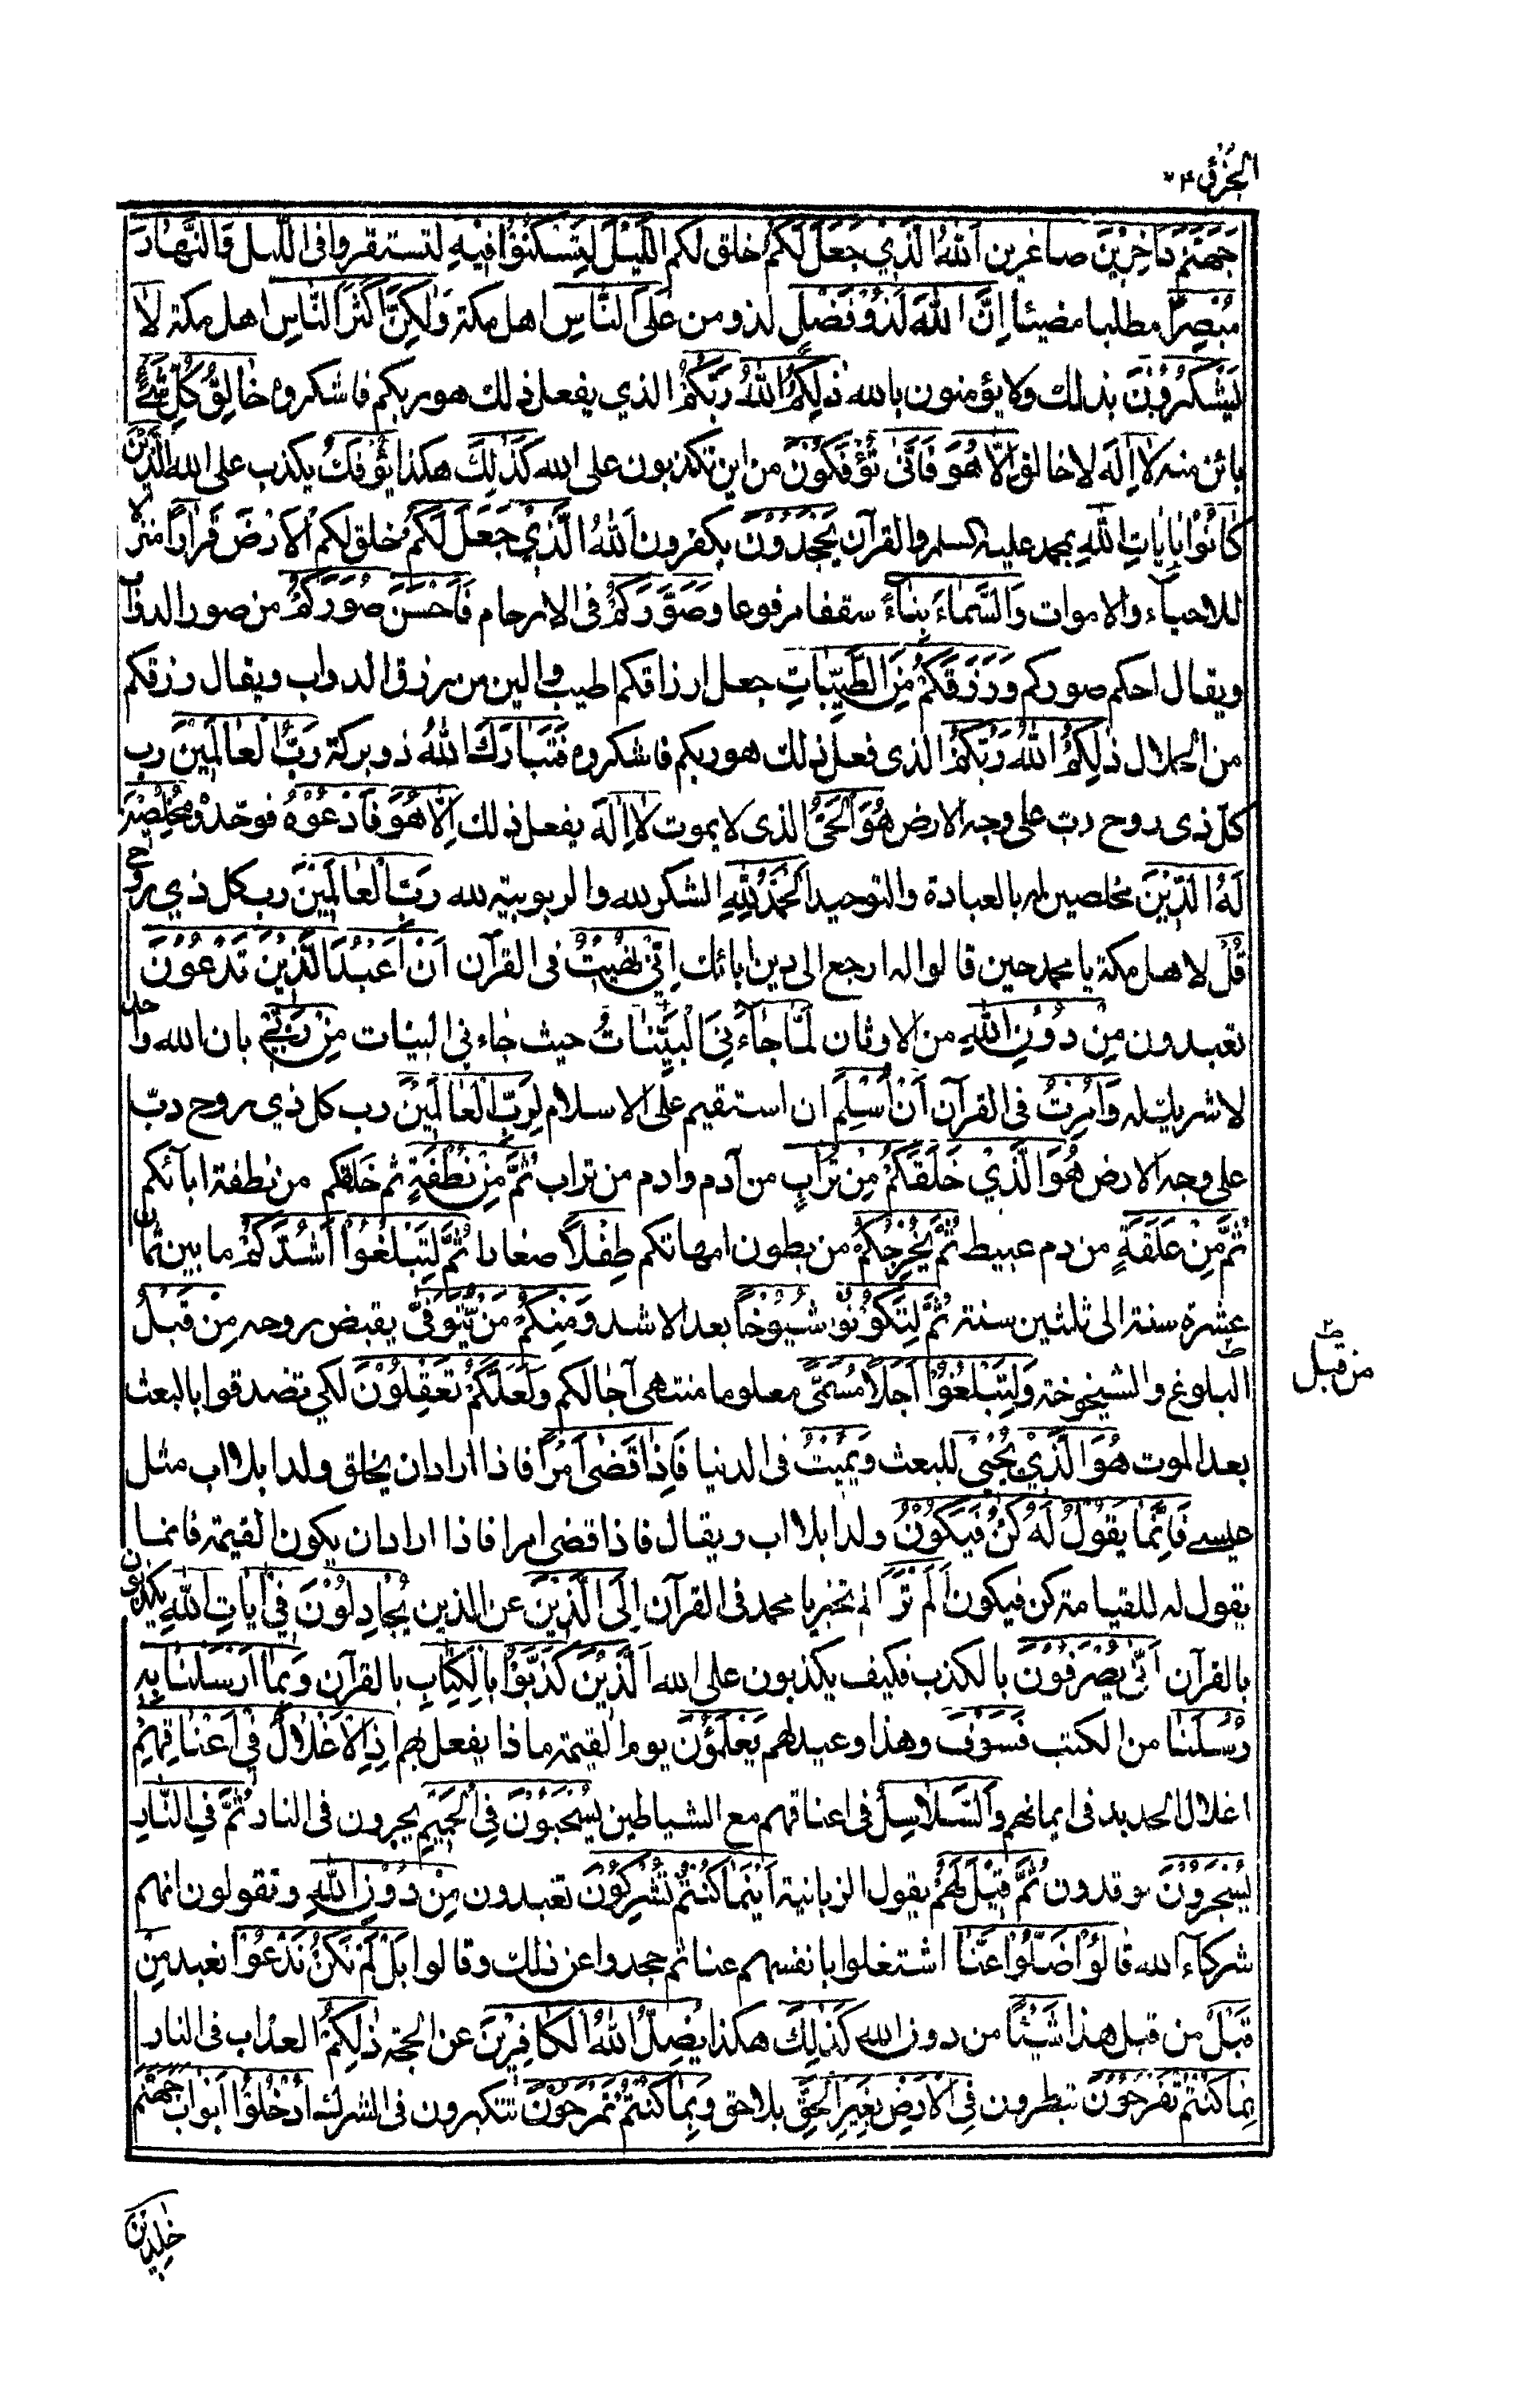 الجزئ ٢٤
جَهَنَّمَ دَاخِرِيْنَ صاغرين اَللّٰهُ الَّذِيْ جَعَلَ لَكُمُ خلق لكم اللَّيْلَ لِتَسْكُنُوْا فِيْهِ لتستقروا فى الليل وَالنَّهَارَ
مُبْصِرًا مطلبا مضيئا اِنَّ اللّٰهَ لَذُوْ فَضْلٍ لذو من عَلَى النَّاسِ اهل مكة وَلٰكِنَّ اَكْثَرَ النَّاسِ اهل مكة لَا
يَشْكُرُوْنَ بذلك ولا يؤمنون بالله ذٰلِكُمُ اللّٰهُ رَبُّكُمْ الذي يفعل ذلك هو ربكم فاشكروه خَالِقُ كُلِّ شَيْءٍ
بائن منه لَا اِلٰهَ لا خالق اِلَّا هُوَ فَاَنّٰى تُؤْفَكُوْنَ من اين تكذبون على الله كَذٰلِكَ هكذا يُؤْفَكُ يكذب على الله الَّذِيْنَ
كَانُوْا بِاٰيَاتِ اللّٰهِ بمحمد عليه السلم والقرآن يَجْحَدُوْنَ يكفرون اَللّٰهُ الَّذِيْ جَعَلَ لَكُمُ خلق لكم الْاَرْضَ قَرَارًا منزلا
للاحياء والاموات وَالسَّمَاءَ بِنَاءً سقفا مرفوعا وَصَوَّرَكُمْ فى الارحام فَاَحْسَنَ صُوَرَكُمْ من صور الدواب
ويقال احكم صوركم وَرَزَقَكُمْ مِنَ الطَّيِّبَاتِ جعل ارزاقكم اطيب والين من رزق الدواب ويقال رزقكم
من الحلال ذٰلِكُمُ اللّٰهُ رَبُّكُمْ الذى فعل ذلك هو ربكم فاشكروه فَتَبَارَكَ اللّٰهُ ذو بركة رَبُّ الْعَالَمِيْنَ رب
كل ذى روح دبّ على وجه الارض هُوَ الْحَيُّ الذى لا يموت لَا اِلٰهَ يفعل ذلك اِلَّا هُوَ فَادْعُوْهُ فوحدوه مُخْلِصِيْنَ
لَهُ الدِّيْنَ مخلصين له بالعبادة والتوحيد اَلْحَمْدُ لِلّٰهِ الشكر لله والربوبية لله رَبِّ الْعَالَمِيْنَ رب كل ذي روح
قُلْ لاهل مكة يا محمد حين قالوا له ارجع الى دين ابائك اِنِّيْ نُهِيْتُ فى القرآن اَنْ اَعْبُدَ الَّذِيْنَ تَدْعُوْنَ
تعبدون مِنْ دُوْنِ اللّٰهِ من الاوثان لَمَّا جَاءَنِيَ الْبَيِّنَاتُ حيث جاءنى البينات مِنْ رَبِّيْ بان الله واحد
لا شريك له وَاُمِرْتُ فى القرآن اَنْ اُسْلِمَ ان استقيم على الاسلام لِرَبِّ الْعَالَمِيْنَ رب كل ذي روح دبّ
على وجه الارض هُوَ الَّذِيْ خَلَقَكُمْ مِنْ تُرَابٍ من آدم وادم من تراب ثُمَّ مِنْ نُطْفَةٍ ثم خلقكم من نطفة ابائكم
ثُمَّ مِنْ عَلَقَةٍ من دم عبيط ثُمَّ يُخْرِجُكُمْ من بطون امهاتكم طِفْلًا صغارا ثُمَّ لِتَبْلُغُوْا اَشُدَّكُمْ ما بين ثمان
عشرة سنة الى ثلثين سنة ثُمَّ لِتَكُوْنُوْا شُيُوْخًا بعد الاشد وَمِنْكُمْ مَنْ يُتَوَفّٰى يقبض روحه مِنْ قَبْلُ
من قبل
البلوغ والشيخوخة وَلِتَبْلُغُوْا اَجَلًا مُسَمًّى معلوما منتهى آجالكم وَلَعَلَّكُمْ تَعْقِلُوْنَ لكي تصدقوا بالبعث
بعد الموت هُوَ الَّذِيْ يُحْيِيْ للبعث وَيُمِيْتُ فى الدنيا فَاِذَا قَضٰى اَمْرًا فاذا اراد ان يخلق ولدا بلا اب مثل
عيسے فَاِنَّمَا يَقُوْلُ لَهُ كُنْ فَيَكُوْنُ ولدا بلا اب ويقال فاذا قضى امرا فاذا اراد ان يكون القيمة فانما
يقول له للقيامة كن فيكون اَلَمْ تَرَ الم تخبر يا محمد فى القرآن اِلَى الَّذِيْنَ عن الذين يُجَادِلُوْنَ فِيْ اٰيَاتِ اللّٰهِ يكذبون
بالقرآن اَنّٰى يُصْرَفُوْنَ بالكذب فكيف يكذبون على الله اَلَّذِيْنَ كَذَّبُوْا بِالْكِتَابِ بالقرآن وَبِمَا اَرْسَلْنَا بِهِ
رُسُلَنَا من الكتب فَسَوْفَ وهذا وعيد لهم يَعْلَمُوْنَ يوم القيمة ماذا يفعل بهم اِذِ الْاَغْلَالُ فِيْ اَعْنَاقِهِمْ
اغلال الحديد فى ايمانهم وَالسَّلَاسِلُ فى اعناقهم مع الشياطين يُسْحَبُوْنَ فِي الْحَمِيْمِ يجرون فى النار ثُمَّ فِي النَّارِ
يُسْجَرُوْنَ يوقدون ثُمَّ قِيْلَ لَهُمْ يقول الزبانية اَيْنَمَا كُنْتُمْ تُشْرِكُوْنَ تعبدون مِنْ دُوْنِ اللّٰهِ وتقولون انهم
شركاء الله قَالُوْا ضَلُّوْا عَنَّا اشتغلوا بانفسهم عنا ثم جحدوا عن ذلك وقالوا بَلْ لَمْ نَكُنْ نَدْعُوْا نعبد مِنْ
قَبْلُ من قبل هذا شَيْئًا من دون الله كَذٰلِكَ هكذا يُضِلُّ اللّٰهُ الْكَافِرِيْنَ عن الحجة ذٰلِكُمْ العذاب فى النار
بِمَا كُنْتُمْ تَفْرَحُوْنَ تبطرون فِي الْاَرْضِ بِغَيْرِ الْحَقِّ بلا حق وَبِمَا كُنْتُمْ تَمْرَحُوْنَ تتكبرون فى الشرك اُدْخُلُوْا اَبْوَابَ جَهَنَّمَ
خٰلِدِيْنَ